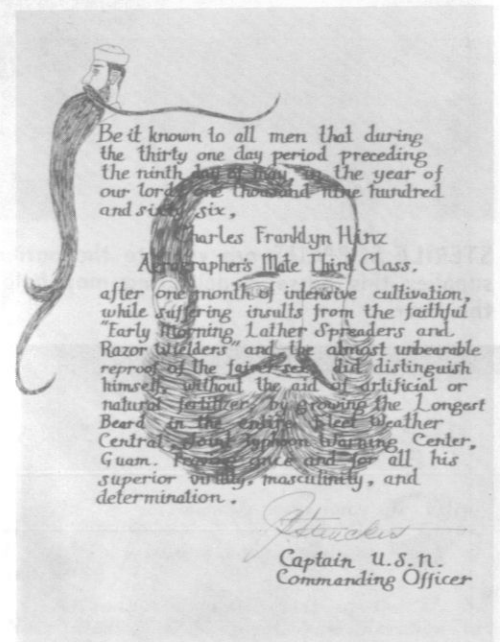 Be it known to all men that during
the thirty one day period preceding
the ninth day of May, in the year of
our lord, one thousand nine hundred
and sixty six,
Charles Franklyn Hinz
Aerographer's Mate Third Class,
after one month of intensive cultivation,
while suffering insults from the faithful
"Early Morning Lather Spreaders and
Razor Wielders" and the almost unbearable
reproof of the fairer sex, did distinguish
himself, without the aid of artificial or
natural fertilizer, by growing the Longest
Beard in the entire Fleet Weather
Central Joint Typhoon Warning Center,
Guam. Proving once and for all his
superior virility, masculinity, and
determination.
Captain U.S.N.
Commanding Officer